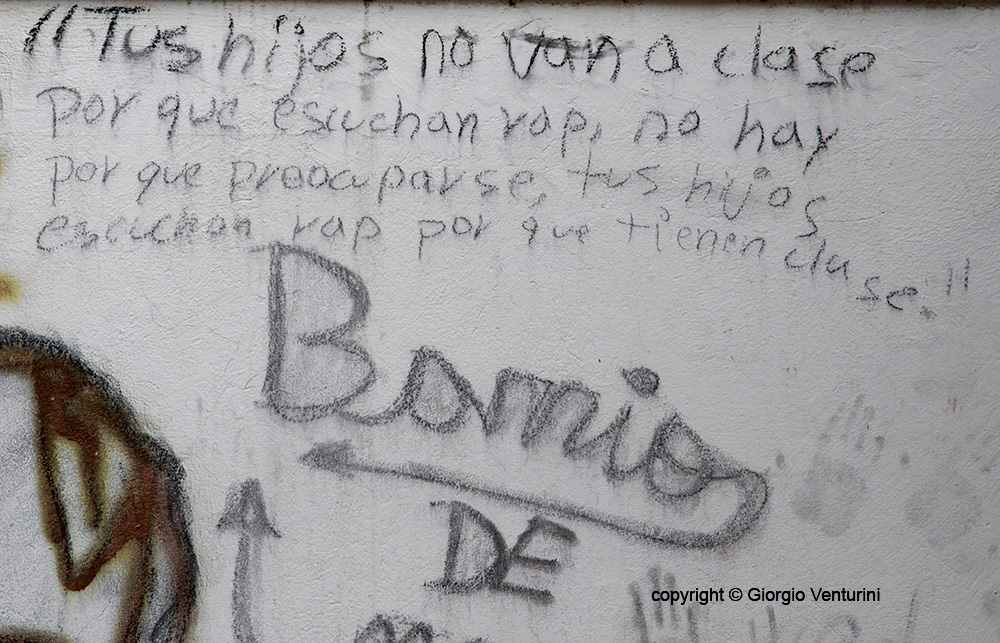 "Tus hijos no van a clase
por que escuchan rap, no hay
por que preocuparse, tus hijos
escuchan rap por que tienen clase."
Barrio
DE
copyright © Giorgio Venturini